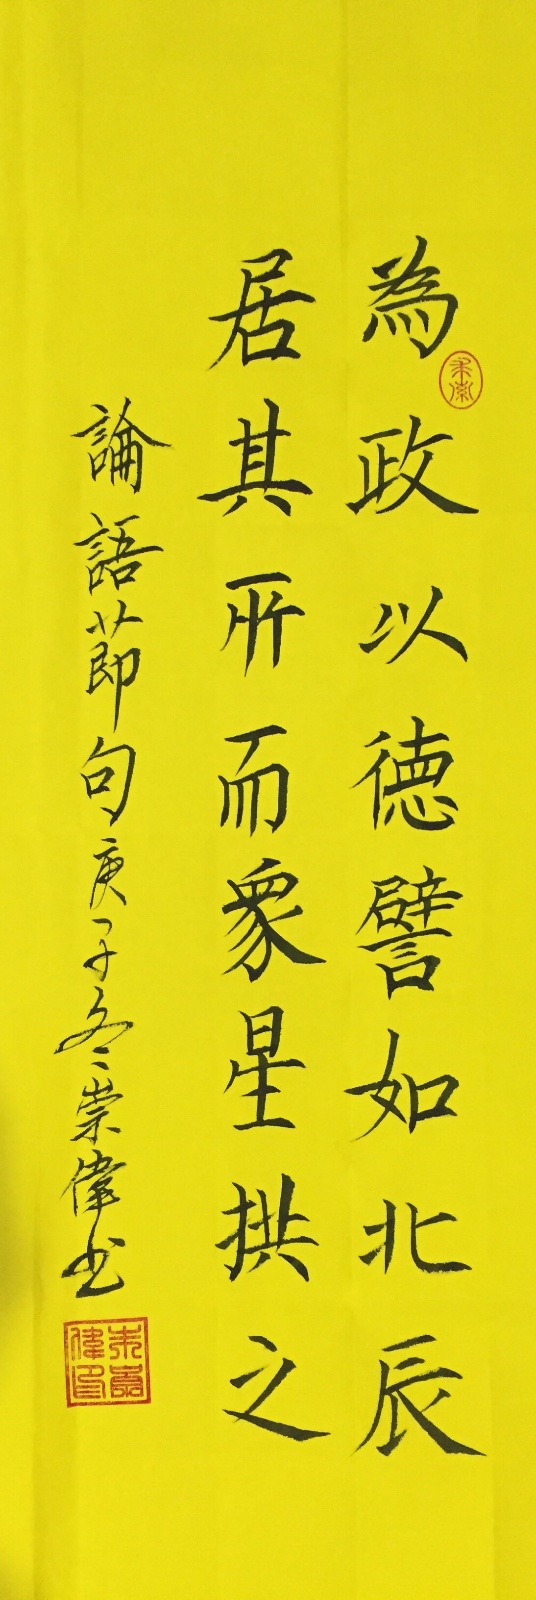 為政以德譬如北辰
居其所而衆星拱之
論語節句庚子冬崇偉书